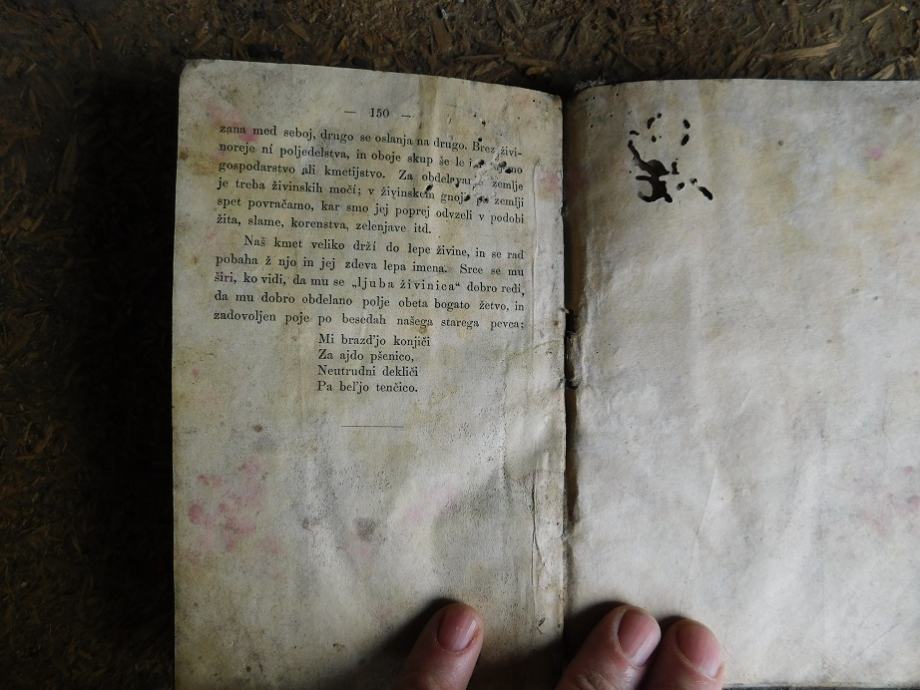 — 150 —
zana med seboj, drugo se oslanja na drugo. Brez živi-
noreje ní poljedelstva, in oboje skup še le
gospodarstwo ali kmetijstvo. Za zemlje
je treba živinskih močí; v živinskem gnoji zemlji
spet povračamo, kar smo jej poprej odvzeli v podobi
žita, slame, korenstva, zelenjave itd.
Naš kmet veliko drží do lepe živine, in se rad
pobaha ž njo in jej zdeva lepa imena. Srce se mu
širi, ko vidi, da mu se „ljuba živinica“ dobro redí,
da mu dobro obdelano polje obeta bogato žetvo, in
zadovoljen poje po besedah našega starega pevca;
Mi brazd'jo konjiči
Za ajdo pšenico,
Neutrudni dekliči
Pa bel'jo tenčico.